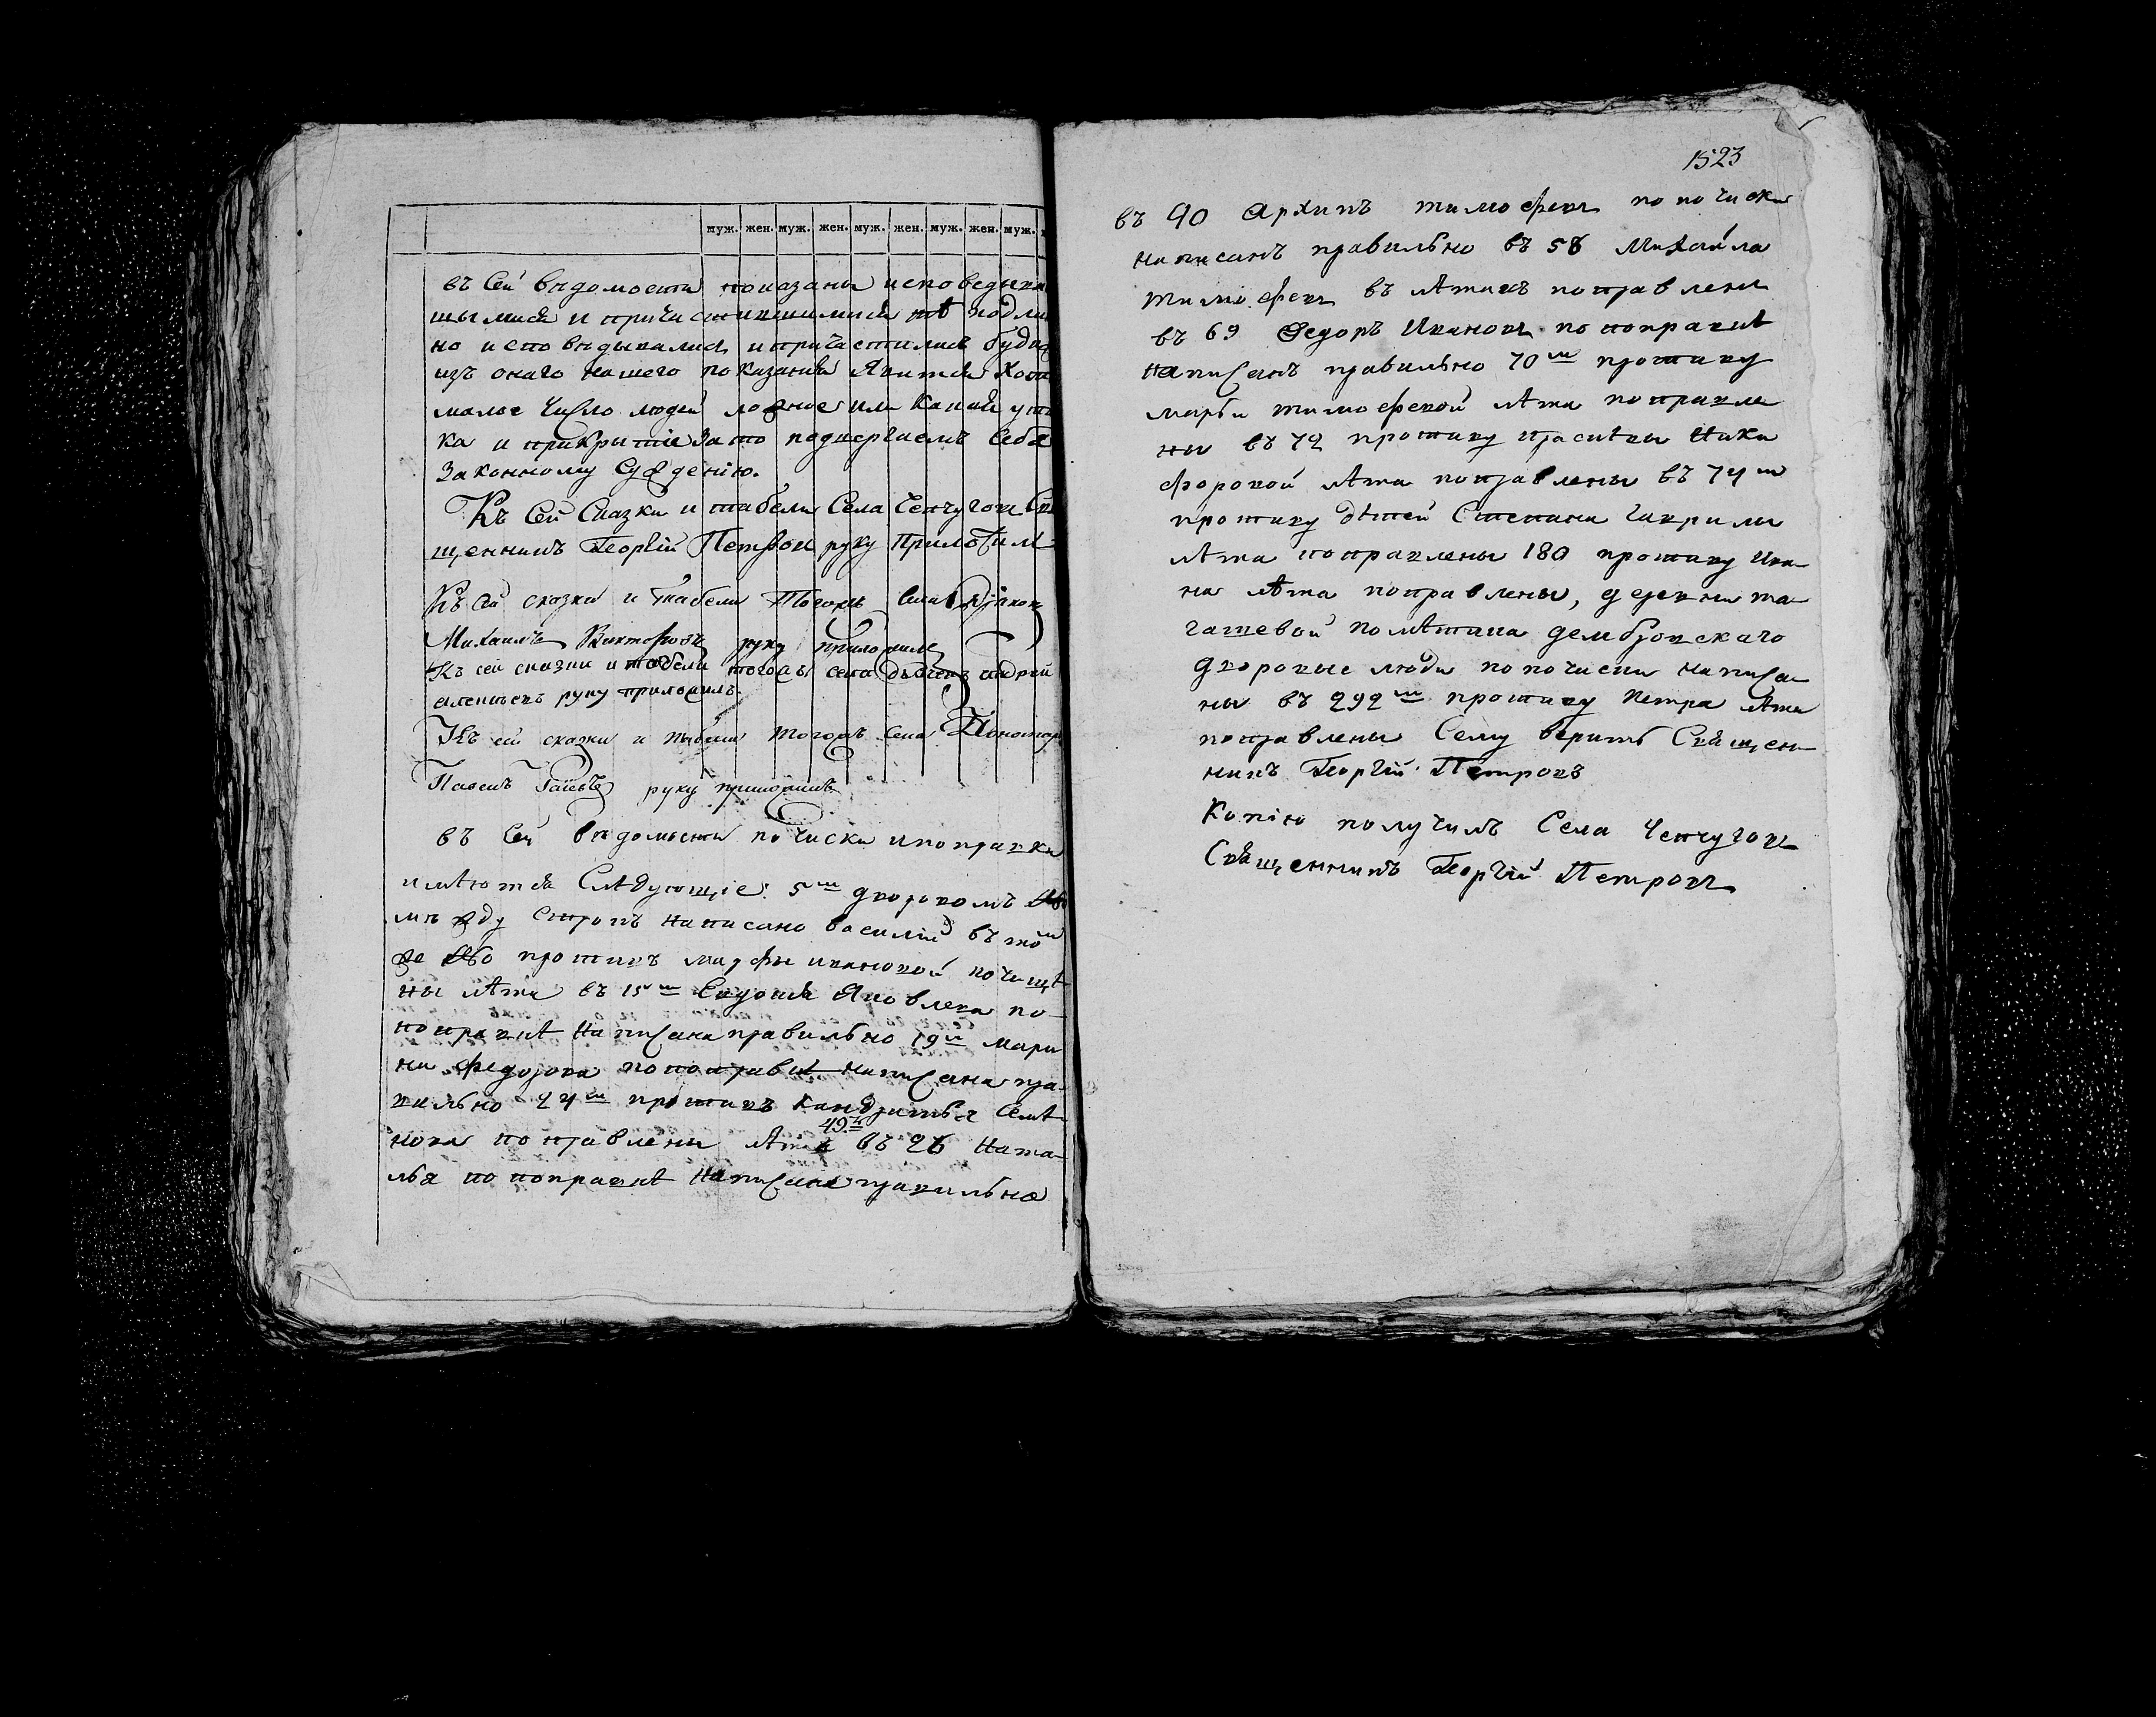 муж. жен. муж. жен. муж. жен. муж. жен. муж.
въ Сей вѣдомости показаны исповедыва
шымися и причастившимися тѣ подли
но исповѣдывались и причастились будѣ
изъ онаго нашего показания явится хотя
малое число людей ложное или какай ут
ка и прикрытіе за то подвергаемъ Себя
Законному Сужденію.
Къ Сей Сказки и табели Села Чепчугова Свя
щенникъ Георгій Петровъ руку приложилъ
Къ сей сказки и табели Тогожъ Села Дьяконъ
Михаилъ Викторовъ руку приложилъ
Къ сей сказки и табели тогожъ села дьячекъ андрей
алексеевъ руку приложилъ
Къ сей сказки и табели тогожъ Села Пономарь
Павелъ руку приложилъ
въ Сей вѣдомости почиски и поправки
имѣются Слѣдующіе: 5мъ дворовомъ
межъду строкъ написано василій въ томъ
же противъ марфы ивановой почищѣ
ны лѣта въ 15мъ Яковлева по
поправкѣ написана правильно 19й мари
на федорова по поправкѣ написана пра
вильно 24мъ противъ Кандратья Семѣ
49.й
нова поправлены лѣта въ 26 ната
лья по поправкѣ написана правильно
1523
въ 90 Архипъ тимофеевъ по почиски
написанъ правильно въ 58 Михайла
тимофеевъ въ лѣтахъ поправлены
въ 69 Федоръ Ивановъ по поправкѣ
написанъ правильно 70мъ противу
марьи тимофеевой лѣта поправле
ны въ 72 противу прасковьи Ники
форовой лѣта поправлены въ 74мъ
противу дѣтей Степана Гаврилы
лѣта поправлены 180 противу Ива
на лѣта поправлены, деревни та
гашевой помѣщика дембровскаго
дворовые люди по почиски написа
ны въ 292мъ противу Петра лѣта
поправлены Сему верить Священ
никъ Георгій Петровъ
Копію получилъ Села Чепчугова
Священникъ Георгій Петровъ